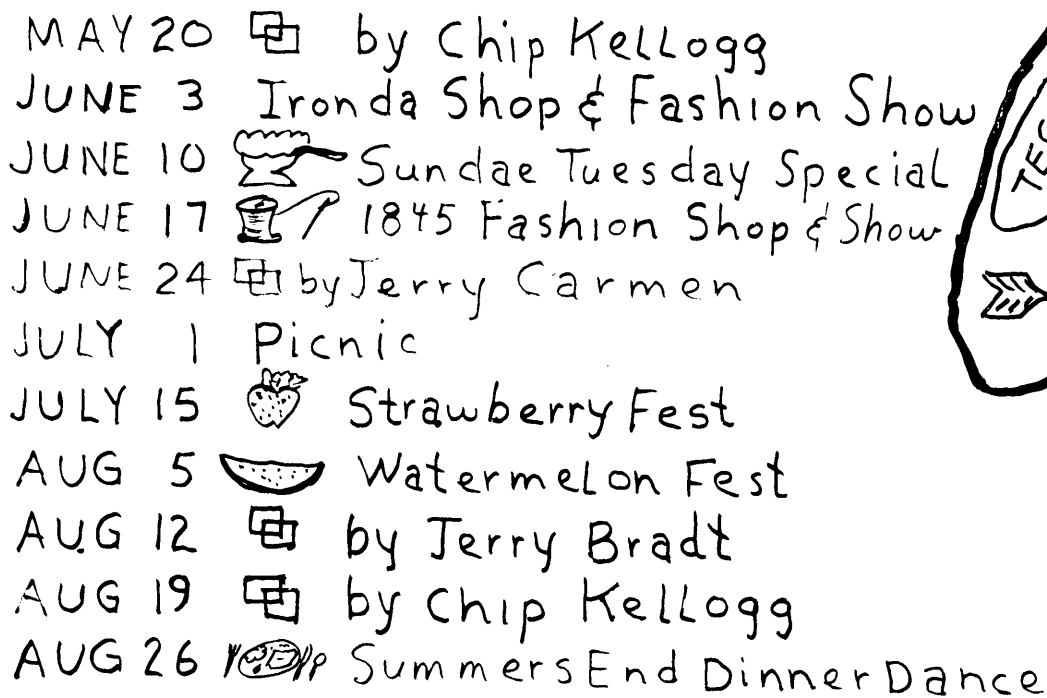 MAY 20 by Chip Kellogg
JUNE 3 Ironda Shop & Fashion Show
JUNE 10 Sundae Tuesday Special
JUNE 17 1845 Fashion Shop & Show
JUNE 24 by Jerry Carmen
JULY 1 Picnic
JULY 15 Strawberry Fest
AUG 5 Watermelon Fest
AUG 12 by Jerry Bradt
AUG 19 by Chip Kellogg
AUG 26 Summers End Dinner Dance